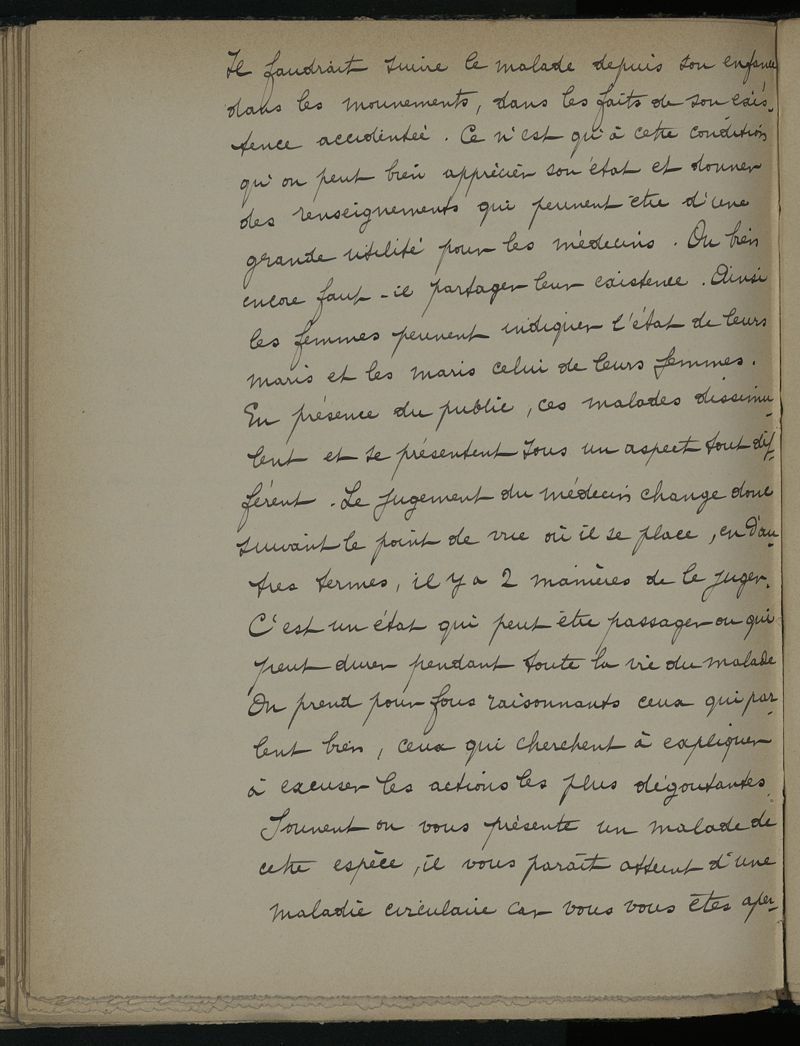 Il faudrait suivre le malade depuis son enfance
dans les mouvements, dans les faits de son exis-
tence accidentée. Ce n'est qu'à cette condition
qu'on peut bien apprécier son état et donner
des renseignements qui peuvent être d'une
grande utilité pour les médecins. Ou bien
encore faut-il partager leur existence. Ainsi
les femmes peuvent indiquer l'état de leurs
maris et les maris celui de leurs femmes.
En présence du public, ces malades dissimu-
lent et se présentent sous un aspect tout dif-
férent. Le jugement du médecin change donc
suivant le point de vue où il se place, en d'au-
tres termes, il y a 2 manières de le juger.
C'est un état qui peut être passager ou qui
peut durer pendant toute la vie du malade
On prend pour fous raisonnants ceux qui par-
lent bien, ceux qui cherchent à expliquer
à excuser les actions les plus dégoutantes.
Souvent on vous présente un malade de
cette espèce, il vous paraît atteint d'une
maladie circulaire car vous vous êtes aper-